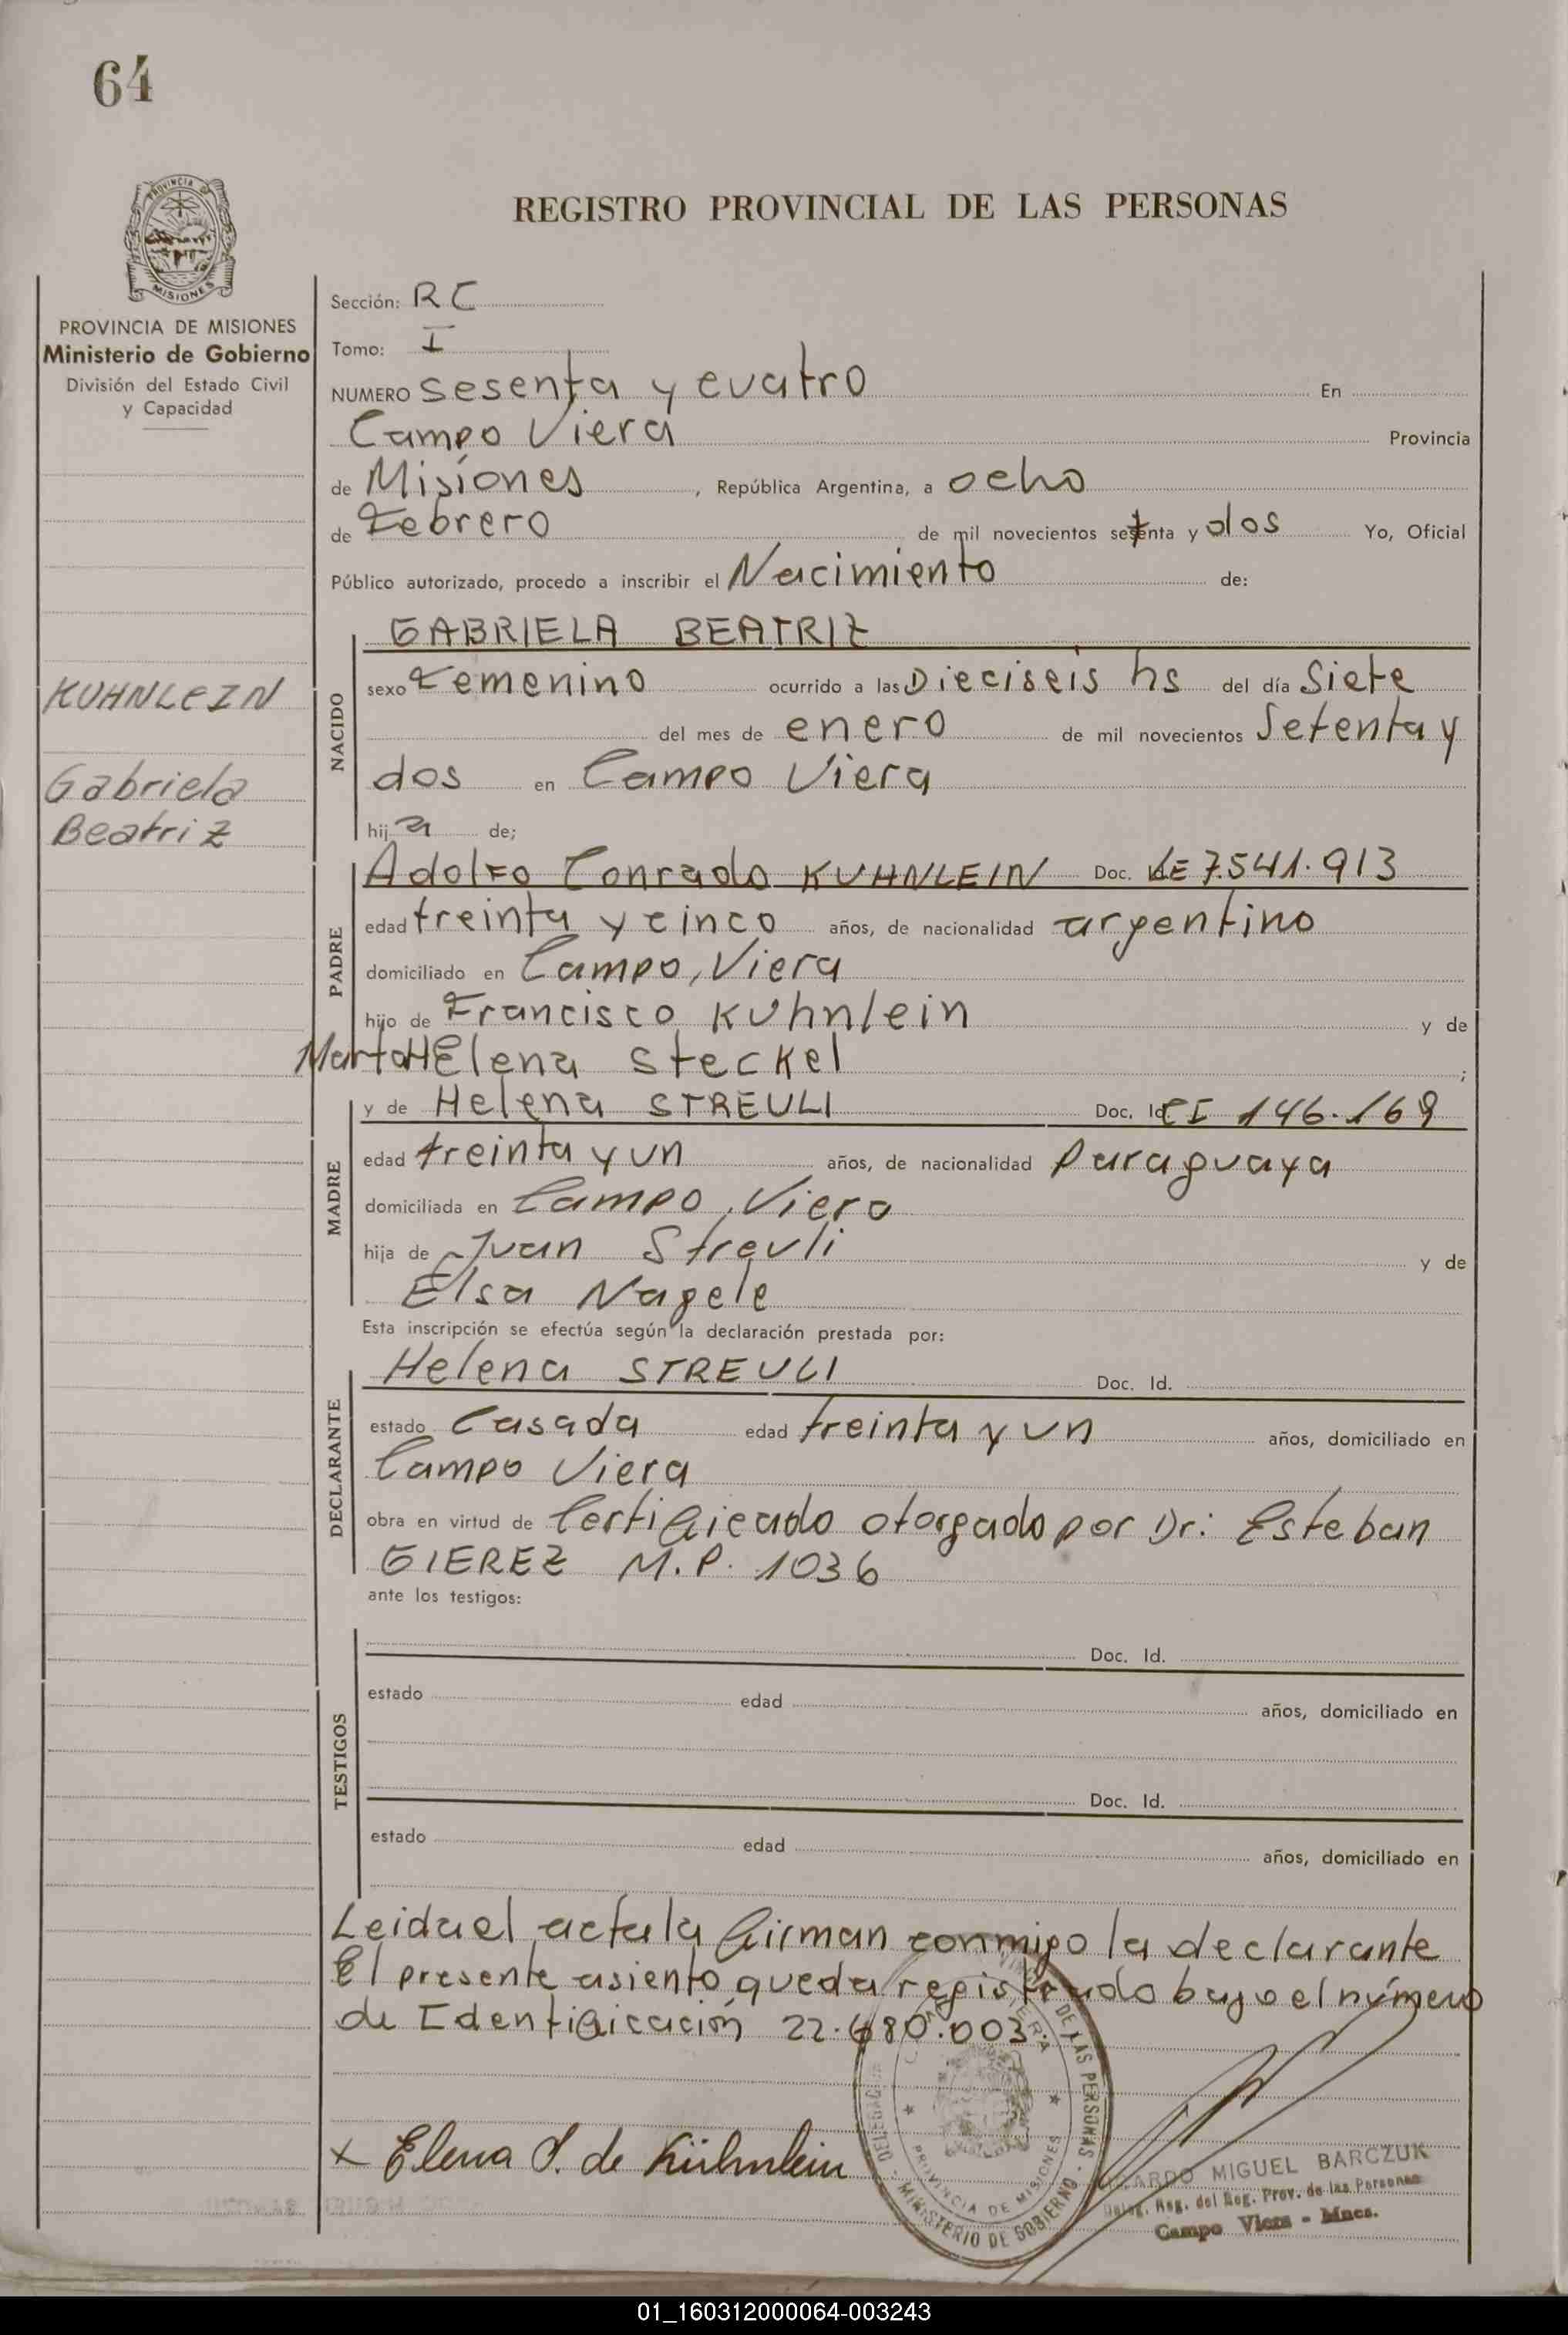 64
PROVINCIA DE
MISIONES
PROVINCIA DE MISIONES
Ministerio de Gobierno
División del Estado Civil
y Capacidad
REGISTRO PROVINCIAL DE LAS PERSONAS
Sección: RC
Tomo: I
NUMERO sesenta y cuatro En
Campo Viera Provincia
de Misiones, República Argentina, a ocho
de Febrero de mil novecientos setenta y dos Yo, Oficial
Público autorizado, procedo a inscribir el Nacimiento de:
KUHNLEIN
Gabriela
Beatriz
NACIDO
GABRIELA BEATRIZ
sexo Femenino ocurrido a las Dieciseis hs del día Siete
del mes de enero de mil novecientos Setenta y
dos en Campo Viera
hija de;
PADRE
Adolfo Conrado KUHNLEIN Doc. LE 7.541.913
edad treinta y cinco años, de nacionalidad argentino
domiciliado en Campo, Viera
hijo de Francisco Kuhnlein y de
Marta HElena Steckel ;
MADRE
y de Helena STREULI Doc. Id CI 146.169
edad treinta y un años, de nacionalidad paraguaya
domiciliada en Campo, Viera
hija de Juan Streuli y de
Elsa Nagele
Esta inscripción se efectúa según la declaración prestada por:
DECLARANTE
Helena STREULI Doc. Id.
estado Casada edad treinta y un años, domiciliado en
Campo Viera
obra en virtud de Certificado otorgado por Dr: Esteban
GIEREZ M.P. 1036
ante los testigos:
TESTIGOS
Doc. Id.
estado edad años, domiciliado en
Doc. Id.
estado edad años, domiciliado en
Leida el acta la firman conmigo la declarante
El presente asiento queda registrado bajo el número
de Identificación 22.680.003.
x Elena S. de Kühnlein
DE LAS PERSONAS
DELEGACION
PROVINCIA DE MISIONES
MINISTERIO DE GOBIERNO
MIGUEL BARCZUK
Deleg. Reg. del Reg. Prov. de las Personas
Campo Viera - Mnes.
01_160312000064-003243